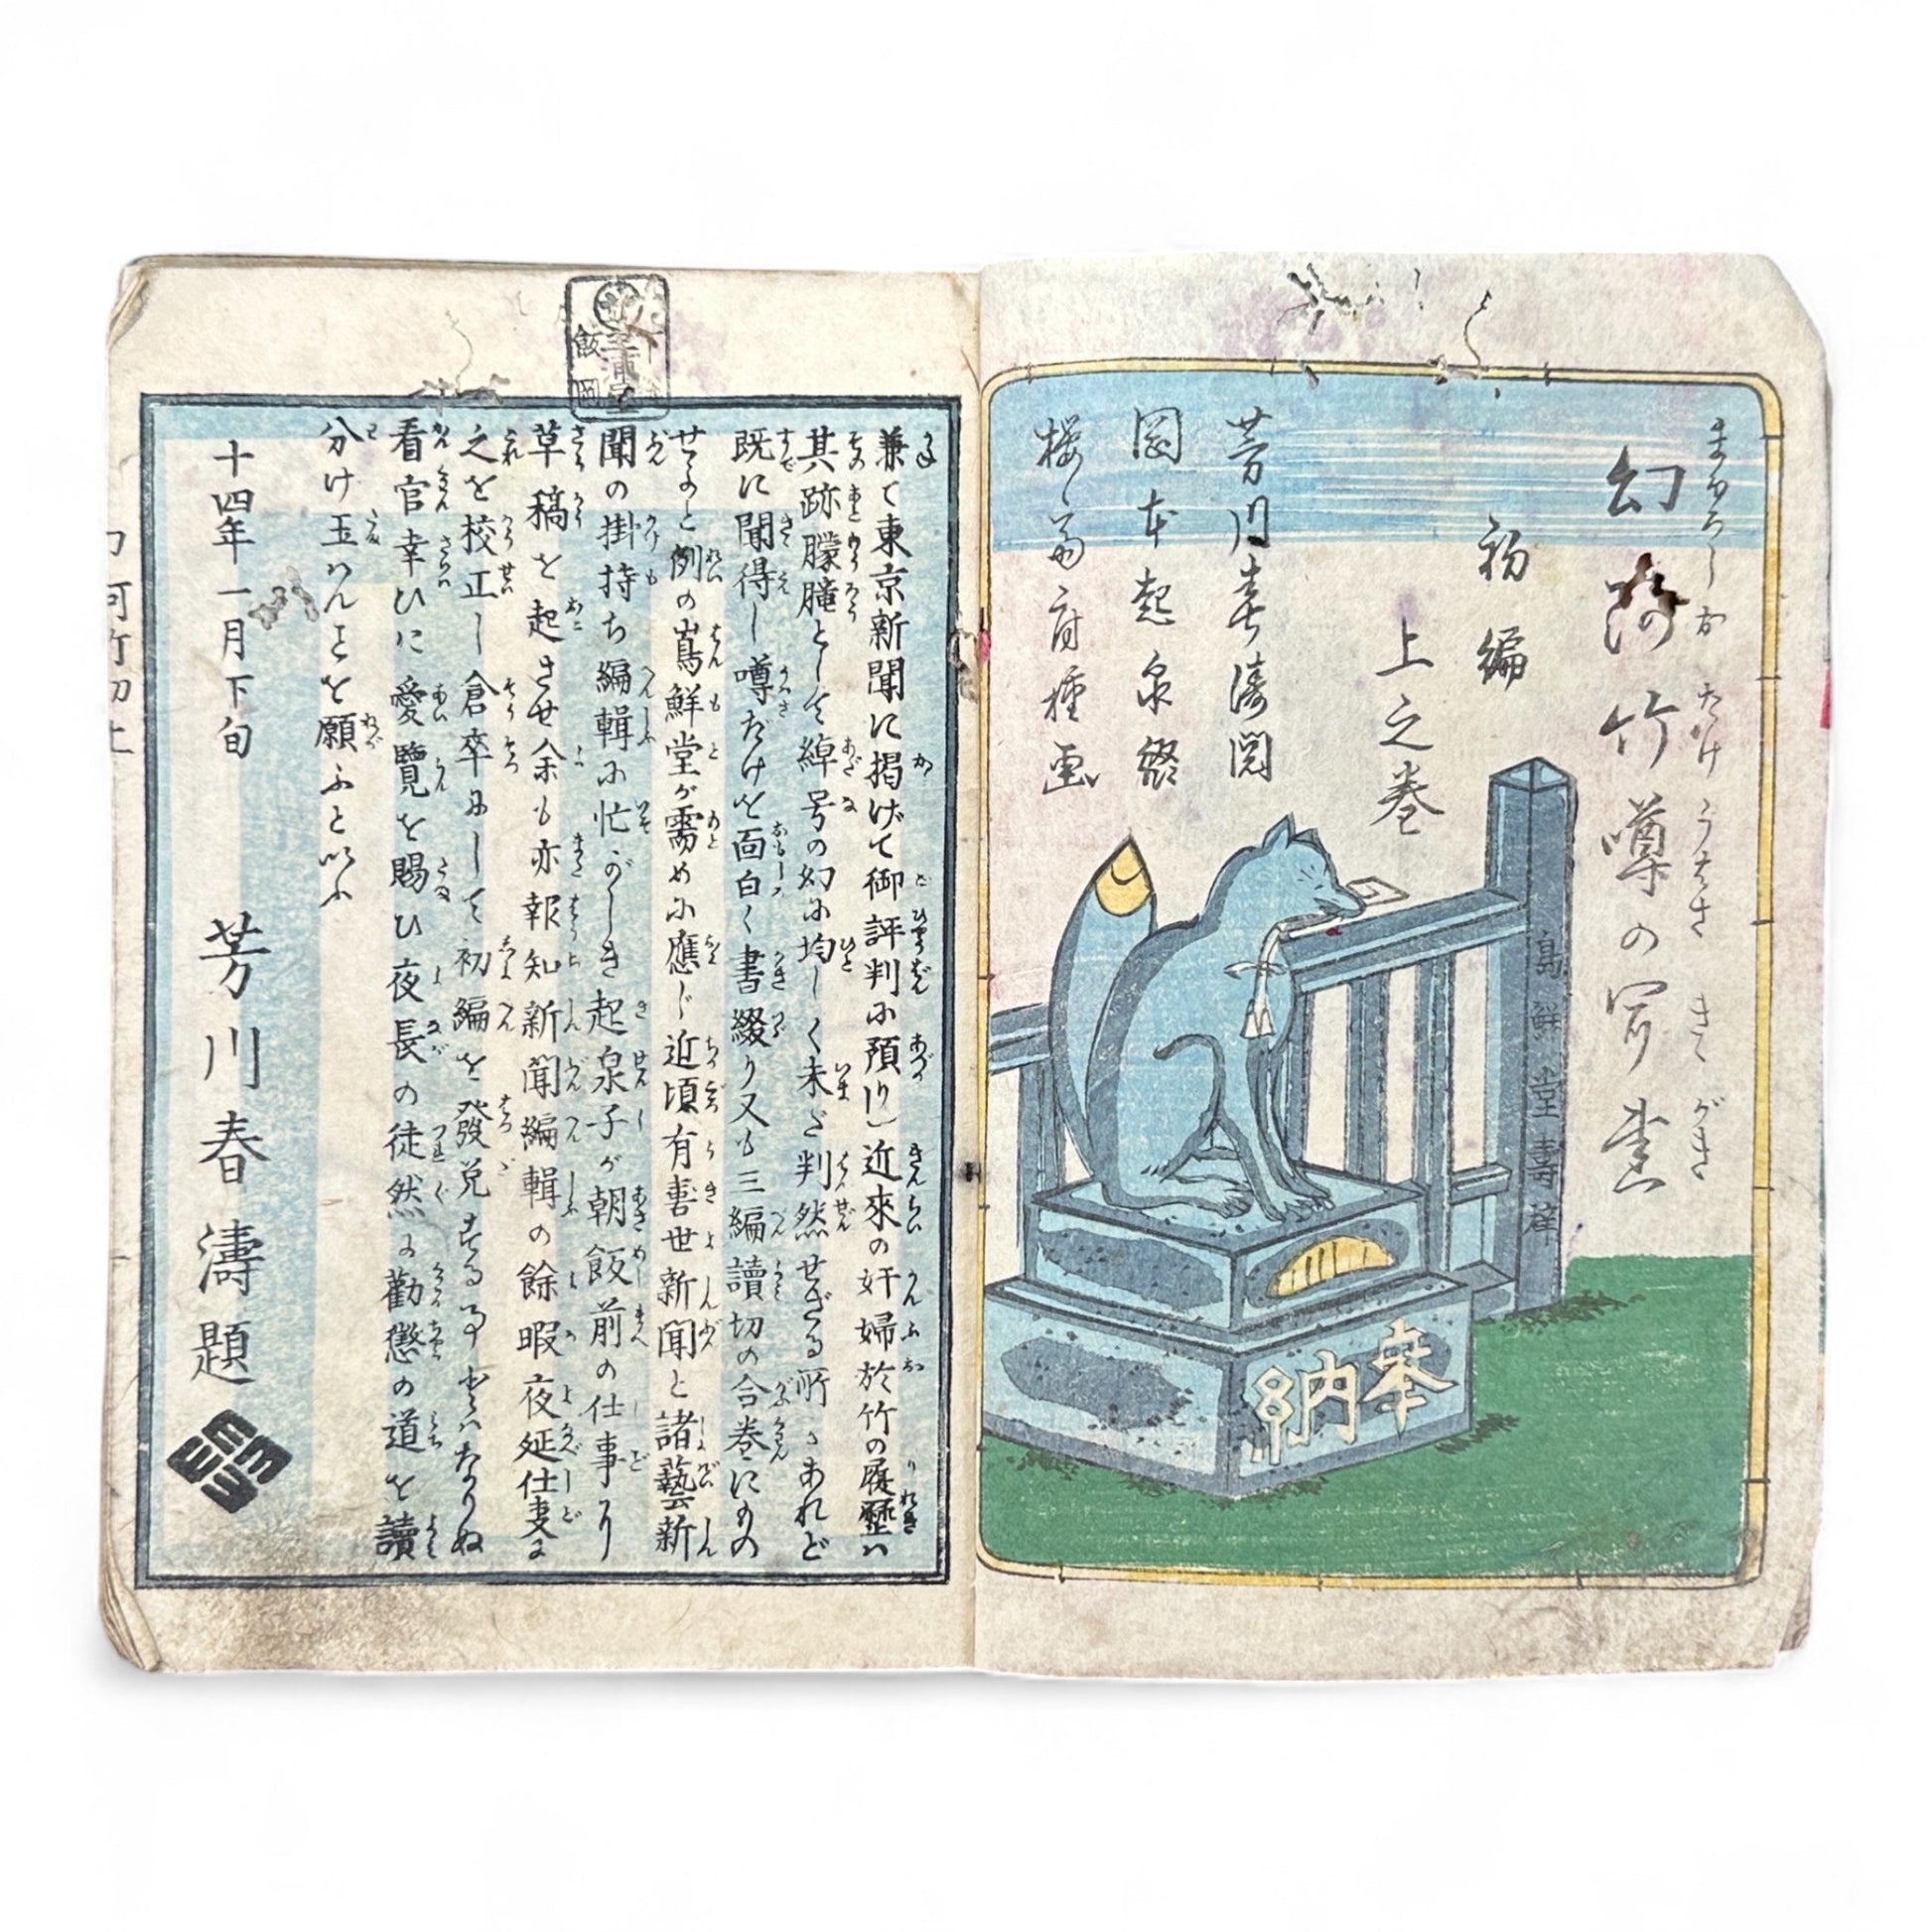 幻阿竹噂の聞書
まぼろしおたけうはさきゝがき
初編
上之巻
芳川春濤閲
岡本起泉綴
桜斎房種画
島鮮堂壽梓
奉納
兼て東京新聞に掲げて御評判に預り」近來の奸婦於竹の履歴ハ
其跡朦朧として綽号の幻に均しく未だ判然せざる所もあれど
既に聞得し噂だけを面白く書綴り又も三編讀切の合巻にもの
せよと例の嶌鮮堂が需めに應じ近頃有喜世新聞と諸藝新
聞の掛持ち編輯に忙がしき起泉子が朝飯前の仕事り
草稿を起させ余も亦報知新聞編輯の餘暇夜延仕叓に
之を校正し倉卒にして初編を發兌する事とハなりぬ
看官幸ひに愛覽を賜ひ夜長の徒然に勸懲の道を讀
分け玉ハんことを願ふと以ふ
十四年一月下旬
芳川春濤題